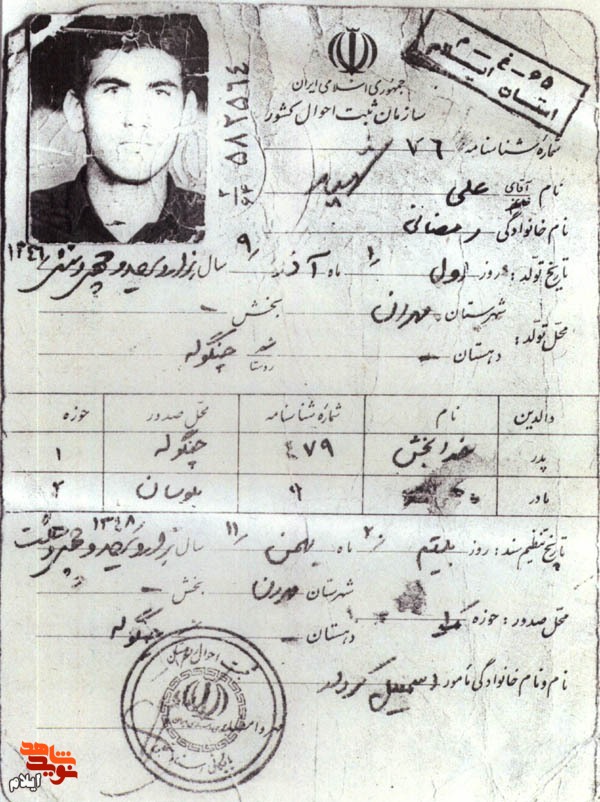 ۶۵ - ۴ - ۳
استان ایلام
جمهوری اسلامی ایران
سازمان ثبت احوال کشور
۵۸۲۵۶۴
۲/۶۴
شمارهٔ شناسنامه ۷۶
نام آقای علی شهید
نام خانوادگی رمضانی
تاریخ تولد: روز اول ۱/ ماه آذر ۹/ سال هزار و سیصد و چهل و شش ۱۳۴۶
محل تولد: شهرستان مهران بخش -
دهستان - روستا چنگوله
والدین نام شمارهٔ شناسنامه محل صدور حوزه
پدر خدابخش ۴۷۹ چنگوله ۱
مادر ۹ بلوسان ۲
تاریخ تنظیم سند: روز بیستم ۲۰/ ماه بهمن ۱۱/ سال هزار و سیصد و چهل و هشت ۱۳۴۸
محل صدور: حوزه شهرستان مهران بخش -
دهستان - چنگوله
نام و نام خانوادگی مأمور
ثبت احوال
نوید شاهد
ایلام